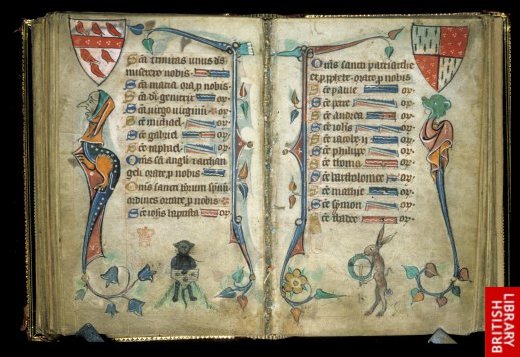 Sca trinitas unus ds
miserere nobis
Sca maria ora p nobis
Sca di genetrix or
Sca virgo virginū or
Sce michael or
Sce gabriel or
Sce raphael or
Oms sci angli z archan
geli orate p nobis
Oms sanctorum spūū
ordines orate p nobis
Sce iohis baptista or
Oms sancti patriarche
et pphete orate p nobis
Sce paule or
Sce petre or
Sce andrea or
Sce iohis or
Sce iacobe or
Sce philippe or
Sce thoma or
Sce bartholomee or
Sce mathie or
Sce symon or
Sce thadee or
BRITISH
LIBRARY